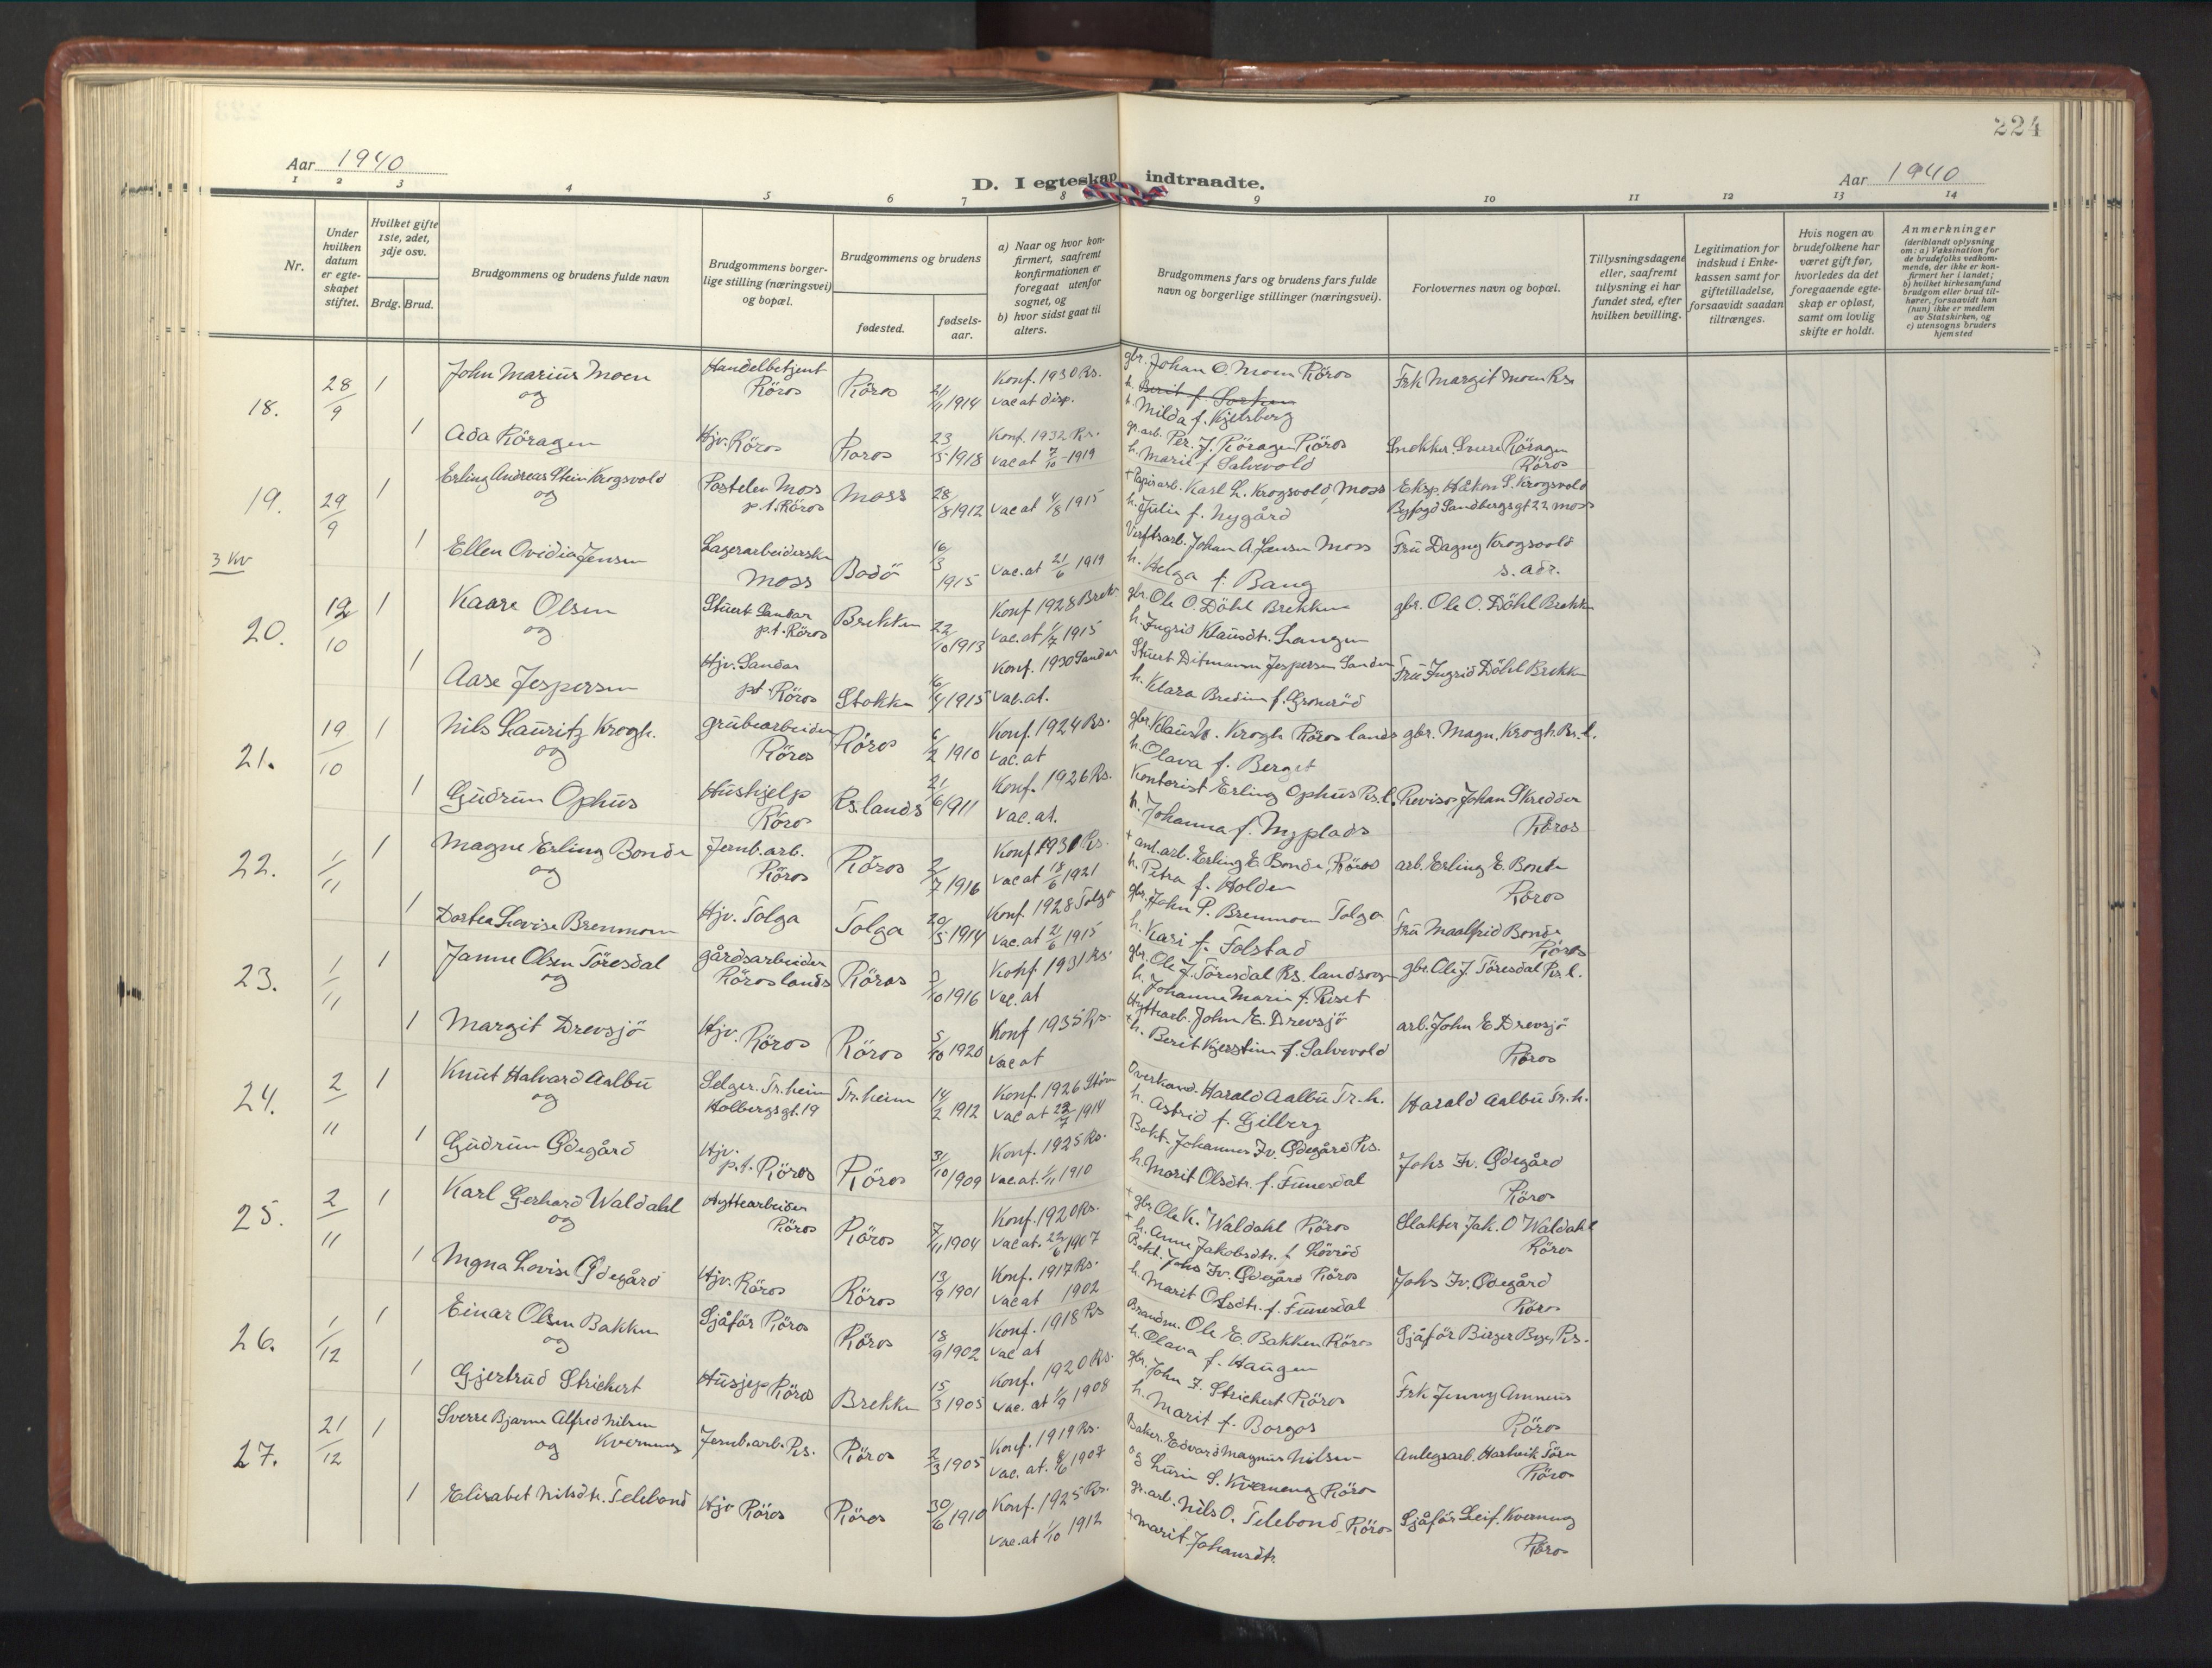 224
Aar 1940
D. I egteskap indtraadte.
Aar 1940
1 2 3 4 5 6 7 8 9 10 11 12 13 14
Nr.
Under hvilken datum er egteskapet stiftet.
Hvilket gifte 1ste, 2det, 3dje osv.
Brdg. Brud.
Brudgommens og brudens fulde navn
Brudgommens borgerlige stilling (næringsvei) og bopæl.
Brudgommens og brudens
fødested.
fødselsaar.
a) Naar og hvor konfirmert, saafremt konfirmationen er foregaat utenfor sognet, og
b) hvor sidst gaat til alters.
Brudgommens fars og brudens fars fulde navn og borgerlige stillinger (næringsvei).
Forlovernes navn og bopæl.
Tillysningsdagene eller, saafremt tillysning ei har fundet sted, efter hvilken bevilling.
Legitimation for indskud i Enkekassen samt for giftetilladelse, forsaavidt saadan tiltrænges.
Hvis nogen av brudefolkene har været gift før, hvorledes da det foregaaende egteskap er opløst, samt om lovlig skifte er holdt.
Anmerkninger
(deriblandt oplysning om: a) Vaksination for de brudefolks vedkommende, der ikke er konfirmert her i landet; b) hvilket kirkesamfund brudgom eller brud tilhører, forsaavidt han (hun) ikke er medlem av Statskirken, og c) utensogns bruders hjemsted
18. 28/9 1 John Marius Moen og Handelbetjent Röros Röros 21/11 1914 Konf. 1930 Rs. vac at disp. gbr. Johan O. Moen Röros h. Berit f. h. Milda f. Kjelsberg Frk Margit Moen Rs.
1 Ada Röragen Hjv. Röros Röros 23/5 1918 Konf. 1932 Rs. vac at 7/10-1919 gr.arb. Per. J. Röragen Röros h. Marie f Salvevold Snekker Sverre Röragen Röros
19. 29/9 1 Erling Andreas Stein Krogsvold og Postelev Moss p.t. Röros Moss 28/8 1912 vac at 4/8 1915 + Papirarb. Karl L. Krogsvold, Moss h. Julie f. Nygård Eksp. Håkon S. Krogsvold Byfogd Sandbergsgt 22 Moss
3 kv
1 Ellen Ovidia Jensen Lagerarbeiderske Moss Bodö 16/3 1915 vac.at 21/6 1919 Verftsarb. Johan A. Jensen Moss h. Helga f. Bang Fru Dagny Krogsvold s. adr.
20. 12/10 1 Kaare Olsen og Stuert Sandar p.t. Röros Brekken 22/10 1913 Konf 1928 Brek. vac.at 1/7 1915 gbr. Ole O. Döhl Brekken h. Ingrid Klausdtr. Langen gbr. Ole O. Döhl Brekken
1 Aase Jespersen Hjv. Sandar pt Röros Stokke 16/4 1915 Konf. 1930 Sandar vac.at. Stuert Ditmann Jespersen Sandar h. Klara Bredine f. Gröneröd Fru Ingrid Döhl Brekken
21. 19/10 1 Nils Lauritz Krogh. og grubearbeider Röros Röros 6/2 1910 Konf. 1924 Rs. vac.at gbr. Klaus N. Krogh Röros lands h. Olava f. Berget gbr. Magn. Krogh. Rs. l.
1 Gudrun Ophus Hushjelp Röros Rs.lands 21/6 1911 Konf. 1926 Rs. vac.at. Kontorist Erling Ophus Rs.l. h. Johanna f. Nyplads Revisor Johan Skredder Röros
22. 1/11 1 Magne Erling Bonde og Jernb.arb. Röros Röros 2/7 1916 Konf. 1931 Rs. vac at 18/6 1921 + anl.arb. Erling E. Bonde, Röros h. Petra f. Holden arb. Erling E. Bonde Röros
1 Dortea Lovise Brennmoen Hjv. Tolga Tolga 20/5 1914 Konf. 1928 Tolga vac.at 21/6 1915 gbr. John P. Brennmoen Tolga h. Kari f. Tolstad Fru Maalfrid Bonde Röros
23. 1/11 1 Janne Olsen Töresdal og gårdsarbeider Röros lands Röros 3/10 1916 Konf 1931 Rs. vac.at gbr. Ole J. Töresdal Rs. landsogn h. Johanna Marie f. Riset gbr. Ole J. Töresdal Rs. l.
1 Margit Drevsjö Hjv. Röros Röros 5/10 1920 Konf 1935 Rs. vac at Hyttearb. John E. Drevsjö + h. Berit Kjerstine f. Salvevold arb. John E Drevsjö Röros
24. 2/11 1 Knut Halvard Aalbu og Selger. Tr.heim Holbergsgt. 19 Tr.heim 14/2 1912 Konf. 1926 Stören vac at 23/7 1914 Overkond. Harald Aalbu Tr.h. h. Astrid f. Gilberg Harald Aalbu Tr.h.
1 Gudrun Ödegård Hjv. p.t. Röros Röros 31/10 1909 Konf. 1925 Rs. vac.at. 1/11 1910 Bokt. Johannes Iv. Ödegård Rs. h. Marit Olsdtr. f. Funesdal Johs Iv. Ödegård Röros
25. 2/11 1 Karl Gerhard Waldahl og Hyttearbeider Röros Röros 7/11 1904 Konf. 1920 Rs. vac at. 22/6 1907 + gbr. Ole K. Waldahl Röros + h. Anne Jakobsdtr. f. Lövröd Slakter Jak. O Waldahl Röros
1 Magna Lovise Ödegård Hjv. Röros Röros 13/9 1901 Konf. 1917 Rs. vac at 1902 Bokt. Johs Iv. Ödegård Röros h. Marit Olsdtr. f. Funesdal Johs Iv. Ödegård Röros
26. 1/12 1 Einar Olsen Bakken og Sjåför Röros Röros 18/9 1902 Konf. 1918 Rs vac at Brandm. Ole E. Bakken Röros h. Olava f. Haugen Sjåför Birger Berg, Rs.
1 Gjertrud Strickert Husjep Röros Brekken 15/3 1905 Konf. 1920 Rs. vac. at 6/9 1908 gbr. John F. Strickert Röros h. Marit f. Borgos Frk Jenny Amneus Röros
27. 21/12 1 Sverre Bjarne Alfred Nilsen Kverneng og Jernb.arb. Rs. Röros 2/3 1905 Konf. 1919 Rs. vac. at. 8/6 1907 Baker. Edvard Magnus Nilsen og Lusie S. Kverneng Röros Anlegsarb. Hartvik Törn Röros
1 Elisabet Nilsdtr. Telebond Hjv Röros Röros 30/6 1910 Konf. 1925 Rs. vac.at 1/10 1912 gr.arb. Nils O. Telebond, Röros + Marit Johansdtr. Sjåför Leif. Kverneng Röros